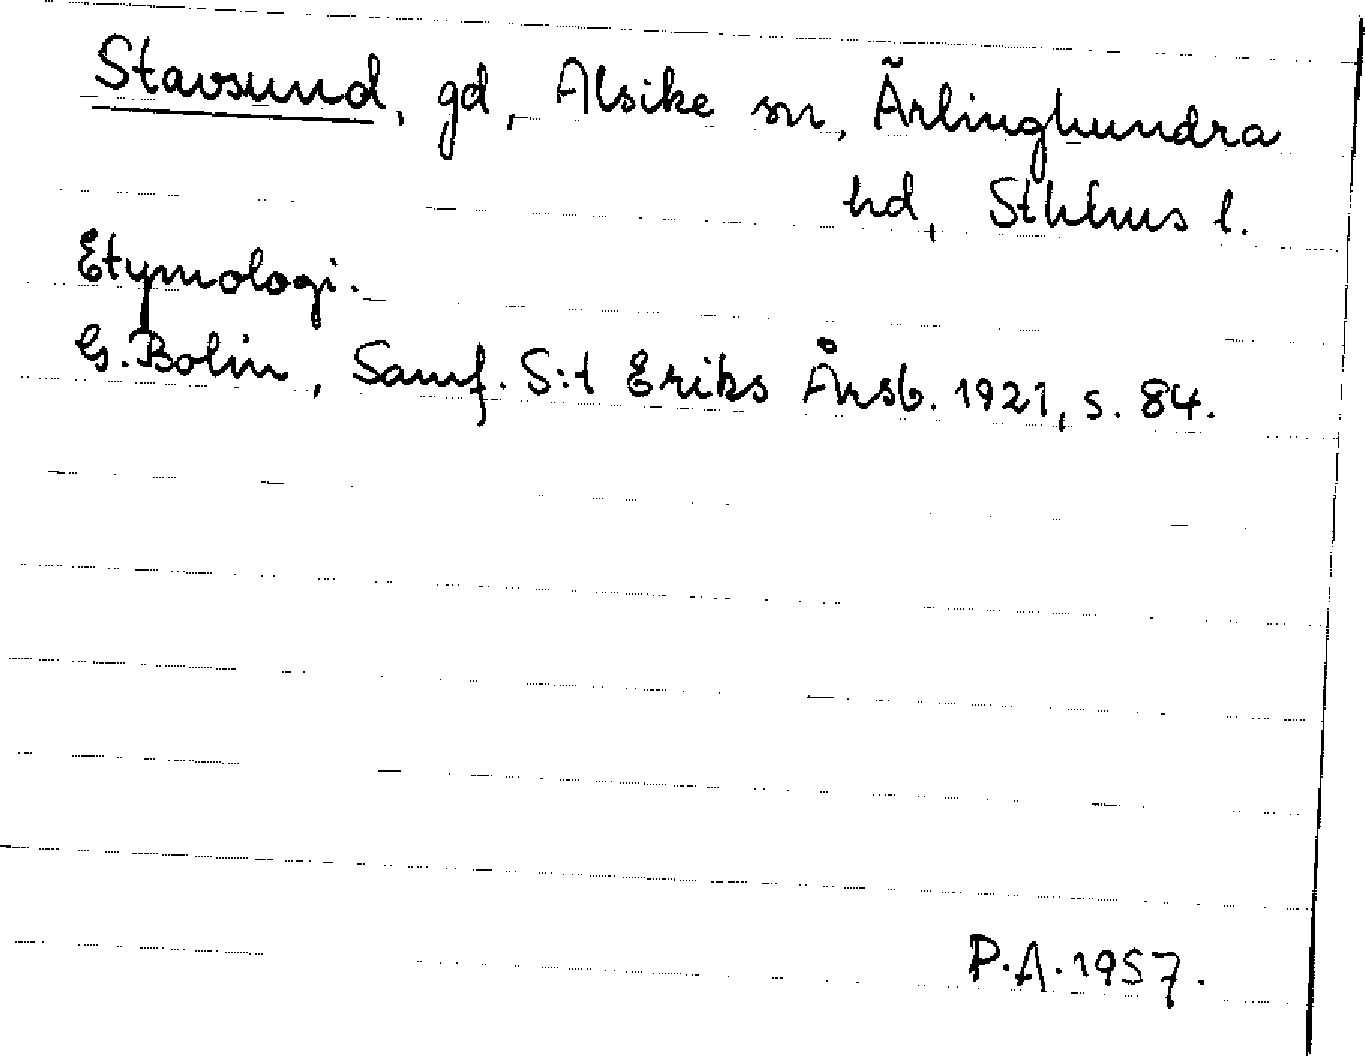 Stavsund, gd, Alsike sn, Ärlinghundra
hd, Sthlms l.
Etymologi.
G. Bolin, Samf. S:t Eriks Årsb. 1921, s. 84.
P.A. 1957.